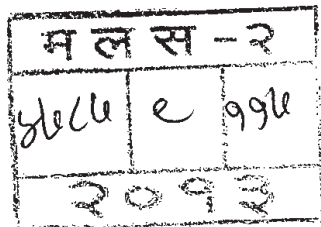 मलस-२
४५८५ ९ ११५
२०१३